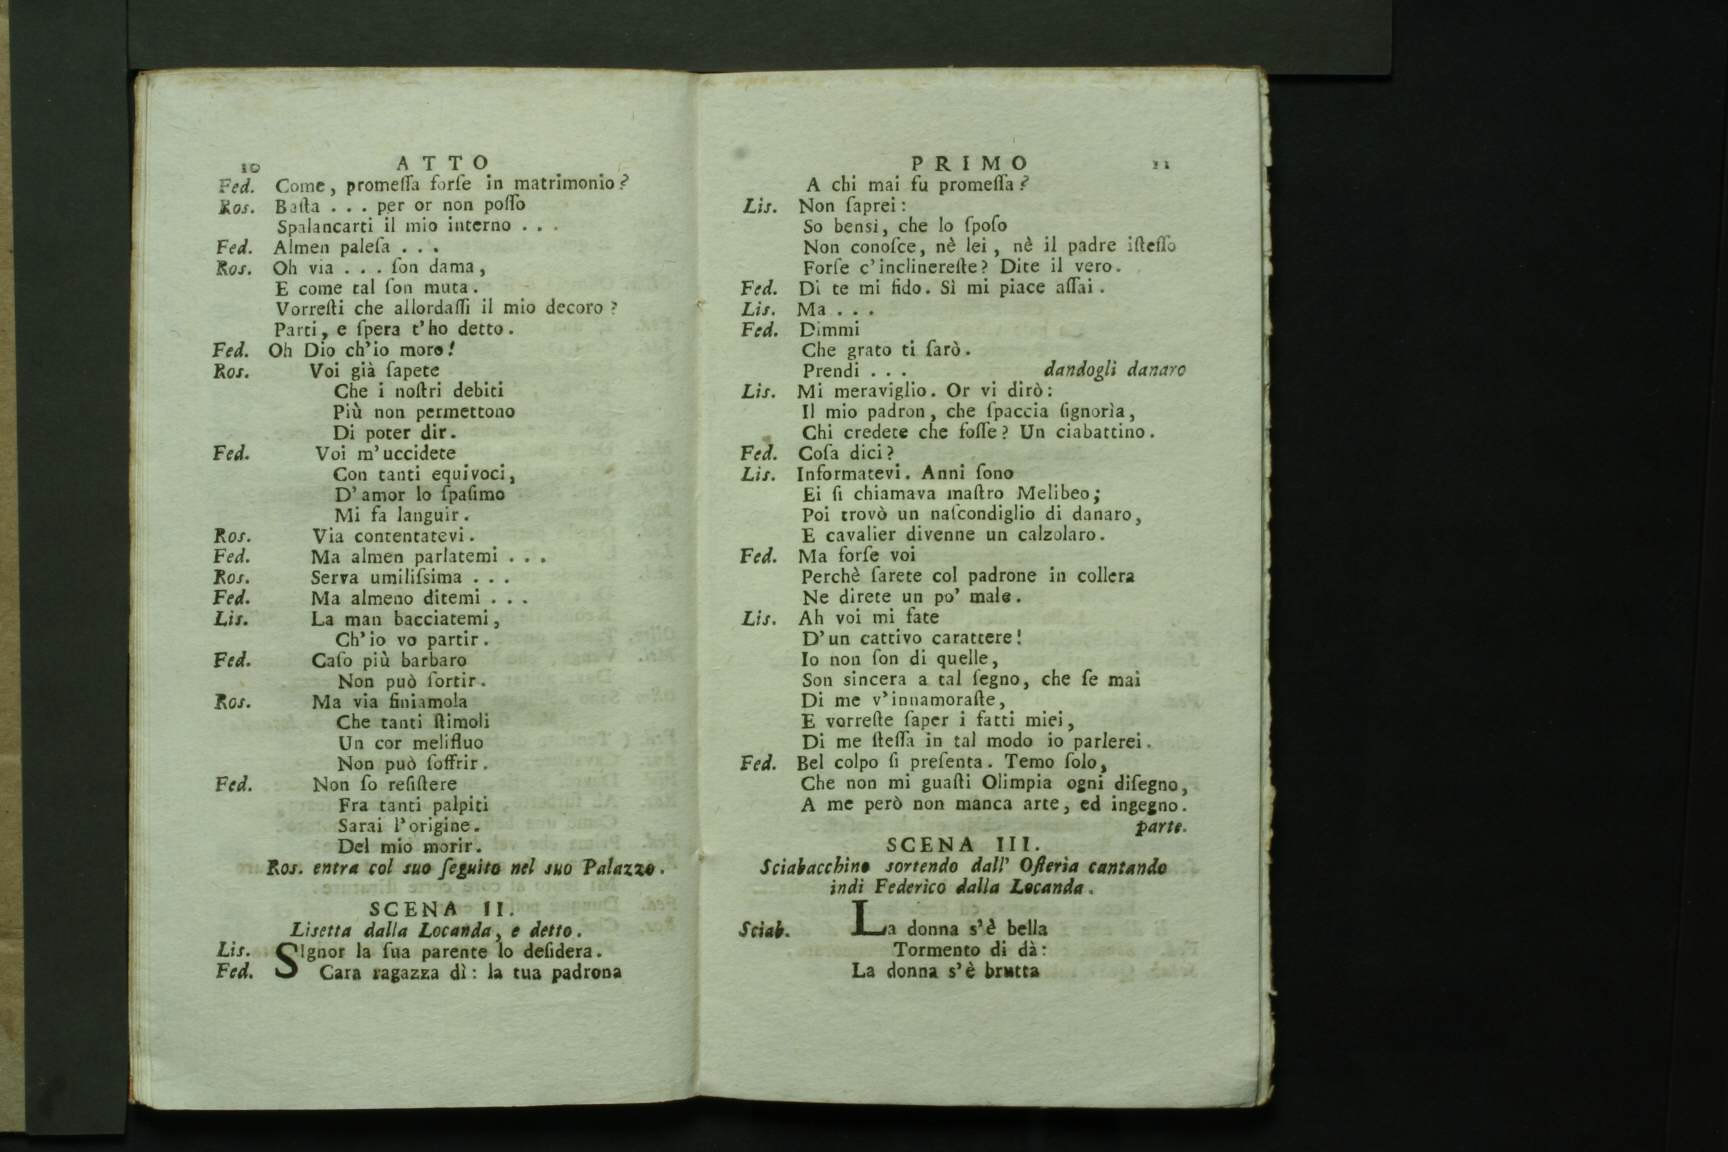 10 ATTO
Fed. Come, promeſſa forſe in matrimonio?
Ros. Baſta . . . per or non poſſo
Spalancarti il mio interno . . .
Fed. Almen paleſa . . .
Ros. Oh via . . . ſon dama,
E come tal ſon muta.
Vorreſti che allordaſſi il mio decoro?
Parti, e ſpera t'ho detto.
Fed. Oh Dio ch'io moro!
Ros. Voi già ſapete
Che i noſtri debiti
Più non permettono
Di poter dir.
Fed. Voi m'uccidete
Con tanti equivoci,
D'amor lo ſpaſimo
Mi fa languir.
Ros. Via contentatevi.
Fed. Ma almen parlatemi . . .
Ros. Serva umiliſsima . . .
Fed. Ma almeno ditemi . . .
Lis. La man bacciatemi,
Ch'io vo partir.
Fed. Caſo più barbaro
Non può ſortir.
Ros. Ma via finiamola
Che tanti ſtimoli
Un cor melifluo
Non può ſoffrir.
Fed. Non ſo reſiſtere
Fra tanti palpiti
Sarai l'origine.
Del mio morir.
Ros. entra col suo ſeguito nel suo Palazzo.
SCENA II.
Lisetta dalla Locanda, e detto.
Lis. SIgnor la ſua parente lo deſidera.
Fed. Cara ragazza dì: la tua padrona
PRIMO 11
A chi mai fu promeſſa?
Lis. Non ſaprei:
So bensi, che lo ſpoſo
Non conoſce, nè lei, nè il padre iſteſſo
Forſe c'inclinereſte? Dite il vero.
Fed. Di te mi fido. Sì mi piace aſſai.
Lis. Ma . . .
Fed. Dimmi
Che grato ti ſarò.
Prendi . . . dandogli danaro
Lis. Mi meraviglio. Or vi dirò:
Il mio padron, che ſpaccia ſignorìa,
Chi credete che foſſe? Un ciabattino.
Fed. Coſa dici?
Lis. Informatevi. Anni ſono
Ei ſi chiamava maſtro Melibeo;
Poi trovò un naſcondiglio di danaro,
E cavalier divenne un calzolaro.
Fed. Ma forſe voi
Perchè ſarete col padrone in collera
Ne direte un po' male.
Lis. Ah voi mi fate
D'un cattivo carattere!
Io non ſon di quelle,
Son sincera a tal ſegno, che ſe mai
Di me v'innamoraſte,
E vorreſte ſaper i fatti miei,
Di me ſteſſa in tal modo io parlerei.
Fed. Bel colpo ſi preſenta. Temo ſolo,
Che non mi guaſti Olimpia ogni diſegno,
A me però non manca arte, ed ingegno.
parte.
SCENA III.
Sciabacchino sortendo dall' Oſteria cantando
indi Federico dalla Locanda.
Sciab. La donna s'è bella
Tormento di dà:
La donna s'è brutta